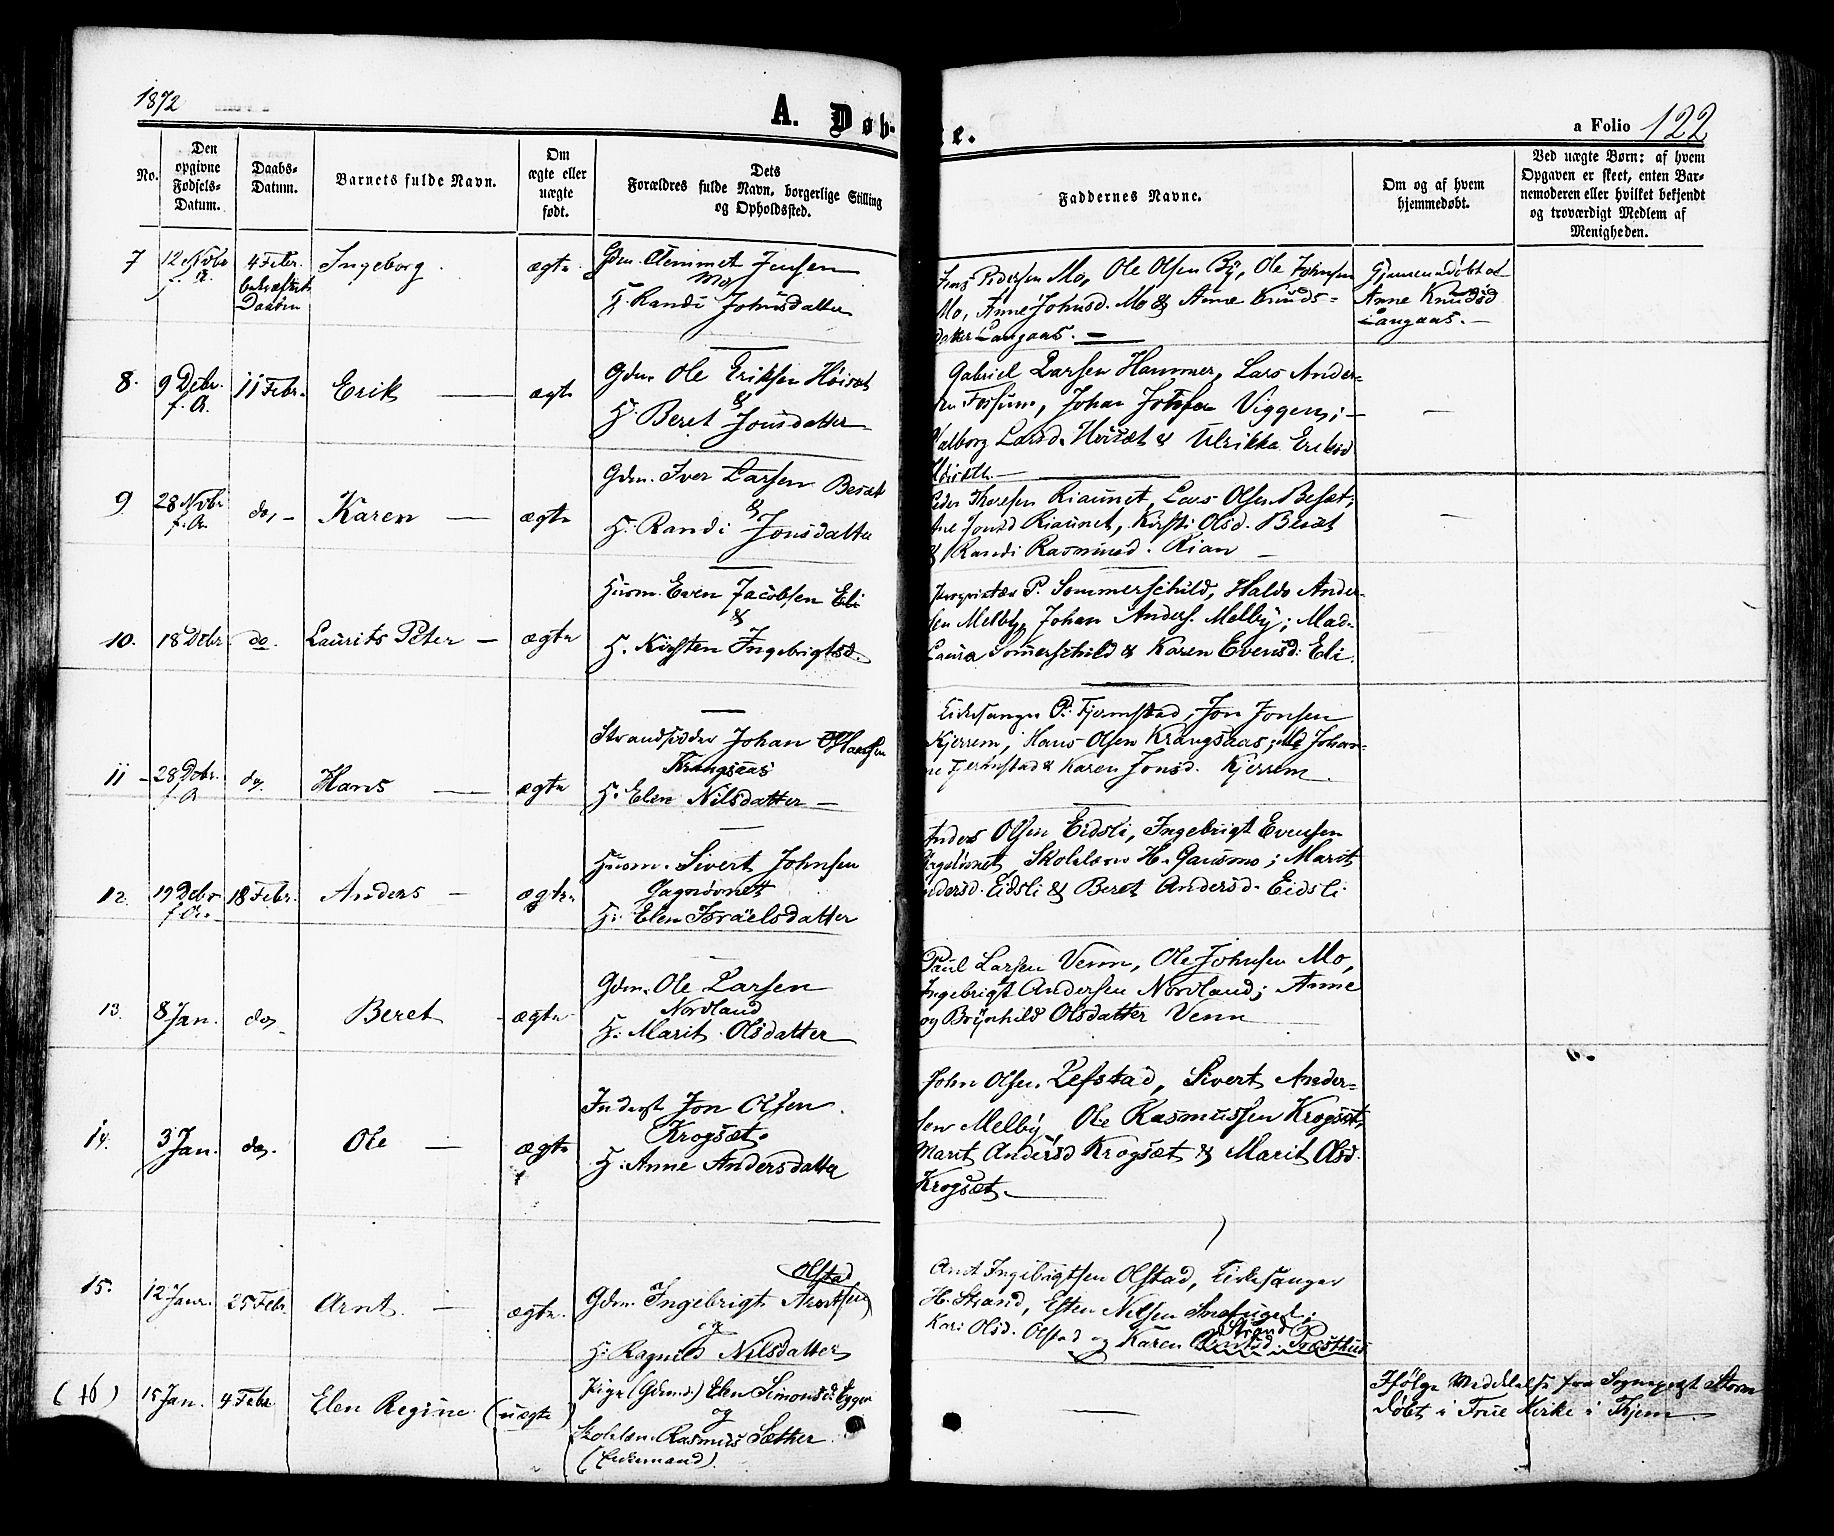 1872
A. Døb-
te.
a Folio 122
No.
Den
opgivne
Fødsels-
Datum.
Daabs-
Datum.
Barnets fulde Navn.
Om
ægte eller
uægte
født.
Dets
Forældres fulde Navn, borgerlige Stilling
og Opholdssted.
Faddernes Navne.
Om og af hvem
hjemmedøbt.
Ved uægte Børn: af hvem
Opgaven er skeet, enten Bar-
nemoderen eller hvilket bekjendt
og troværdigt Medlem af
Menigheden.
7
12 Novbr
f. A.
4 Febr.
bekræftet
Daaben
Ingeborg.
ægte
Gdm. Clemmet Jensen
Mo
H. Randi Johnsdatter
Jens Pedersen Mo, Ole Olsen By, Ole Johnsen
Mo, Anne Johnsd. Mo & Anne Knuds-
datter Langaas. —
Hjemmedøbt af
Anne Knudsd
Langaas. —
8.
9 Debr.
f. A.
11 Febr.
Erik —
ægte
Gdm. Ole Eriksen Hoisæt
&
H. Beret Jonsdatter —
Gabriel Larsen Hammer, Lars Ander-
sen Fossum, Johan Viggen; —
Valborg Larsd. Hoisæt & Ulrikka Eriksd
Hoisæt —
—
9.
28 Novbr
f. A.
do, —
Karen —
ægte
Gdm. Iver Larsen Besæt
&
H. Randi Jonsdatter
Peder Thoresen Riaunet, Lars Olsen Besæt;
Ane Jonsd Riaunet, Kirsti Olsd. Besæt
& Randi Rasmusd. Rian —
—
10.
18 Debr
do.
Laurits Peter —
ægte
Husm. Even Jacobsen Eli
&
H. Kirsten Ingebrigtsd.
Proprietær P. Sommerschild, Haldo Ander-
sen Melby, Johan Anders. Melby; Mad.
Laura Somerschild & Karen Evensd. Eli.
11 —
28 Debr.
f. A
do.
Hans —
ægte
Strandsidder Johan Hansen
Krangsaas
H. Elen Nilsdatter —
Kirkesanger P. Fjermstad, Jon Jonsen
Kjerrem, Hans Olsen Krangsaas; Johan-
ne Fjermstad & Karen Jonsd. Kjerrem.
12.
19 Debr
f. A.
18 Febr.
Anders —
ægte
Husm. Sivert Johnsen
H. Elen Israelsdatter
Anders Olsen Eidsli, Ingebrigt Evensen
Skolelærer H. Gausmo; Marit
Andersd. Eidsli & Beret Andersd. Eidsli
13.
8 Jan.
do.
Beret
ægte
Gdm. Ole Larsen
Nordland
H. Marit Olsdatter
Paul Larsen Venn, Ole Johnsen Mo,
Ingebrigt Andersen Nordland; Anne
og Brynhild Olsdatter Venn
14.
3 Jan.
do.
Ole —
ægte
Inderst Jon Olsen
Krogsæt.
H. Anne Andersdatter
John Olsen Lefstad, Sivert Ander-
sen Melby, Ole Rasmussen Krogsæt,
Marit Andersd Krogsæt & Marit Olsd.
Krogsæt. —
15.
12 Janr.
25 Febr.
Arnt. —
ægte.
Olstad
Gdm. Ingebrigt Arntsen
og
H. Ragnild Nilsdatter
Arnt Ingebrigtsen Olstad, Kirkesanger
H. Strand, Esten Nilsen Snefugel;
Kari Olsd. Olstad og Karen Strand
(16)
15 Jan.
4 Febr
Elen Regine
(uægte)
Pige (Gdmd.) Elen Simonsd: Eggen
og
Skolelær. Rasmus Sæther
(Enkemand).
—
Ifølge Meddelelse fra Sognepræst Storm
døbt i Frue Kirke i Thjem